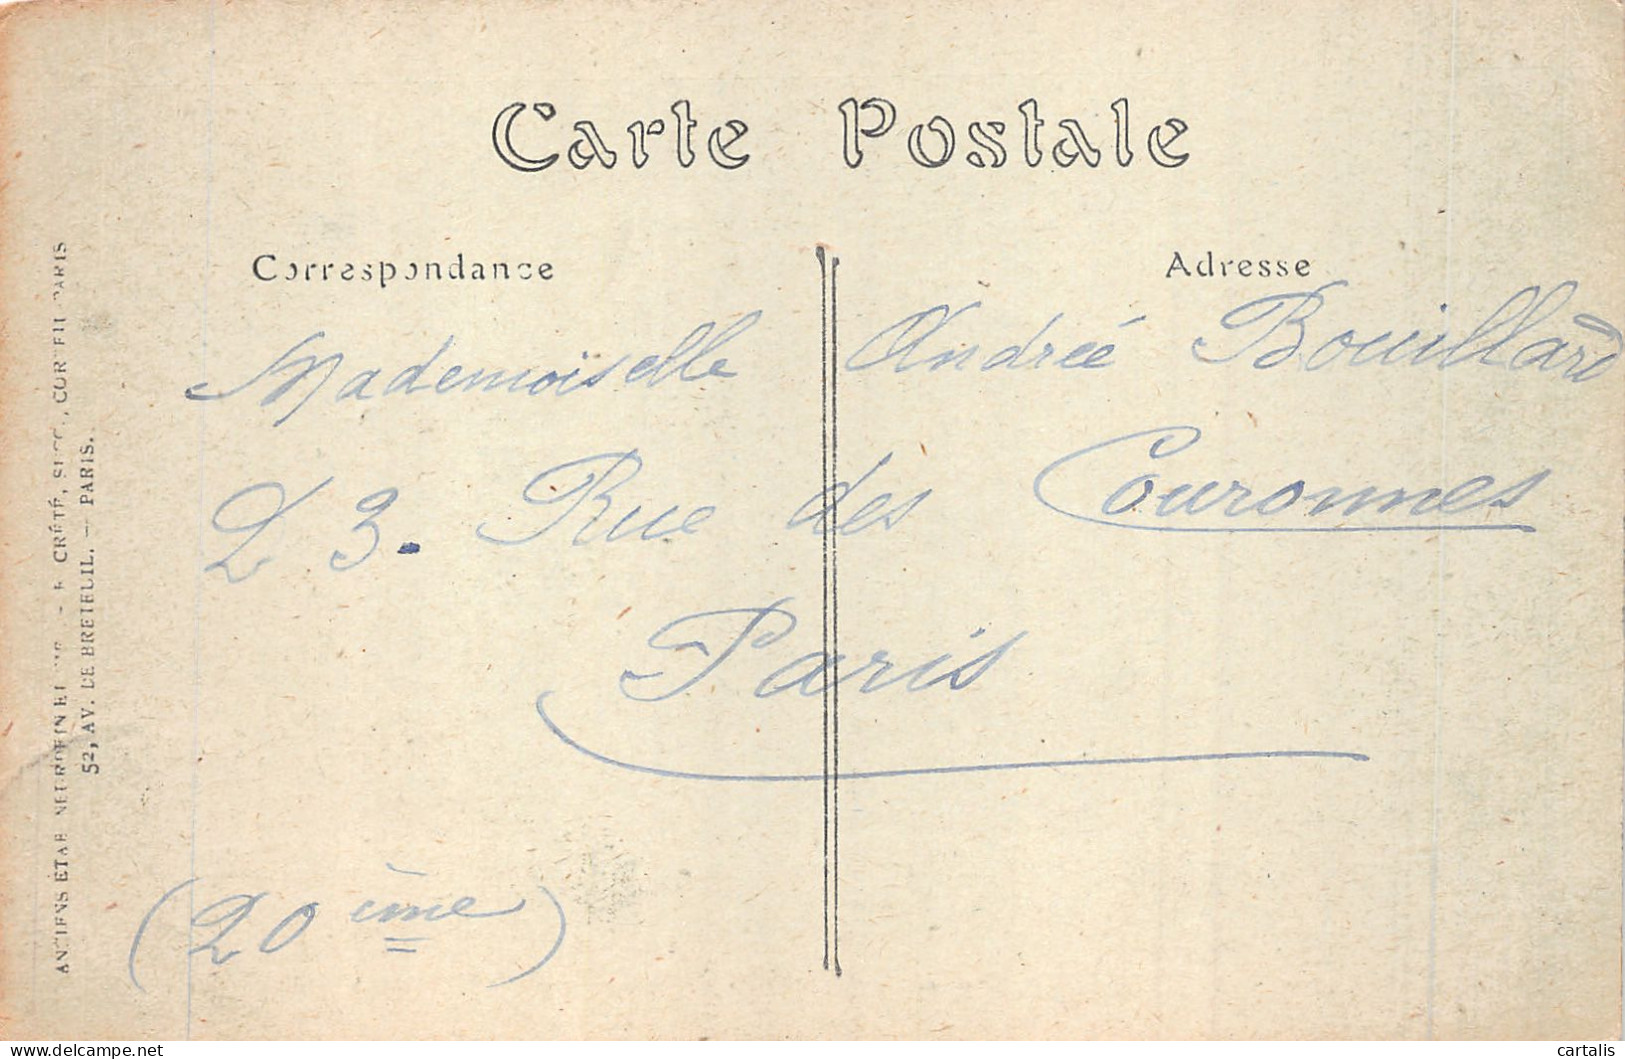 Carte Postale
Correspondance
Adresse
Mademoiselle Andrée Bouillard
23. Rue des Couronnes
Paris
(20ème)
ANCIENS ÉTAB. NEURDEIN ET - CRÉTÉ, SUCC., CORBEIL-PARIS
52, AV. DE BRETEUIL. — PARIS.
cartalis